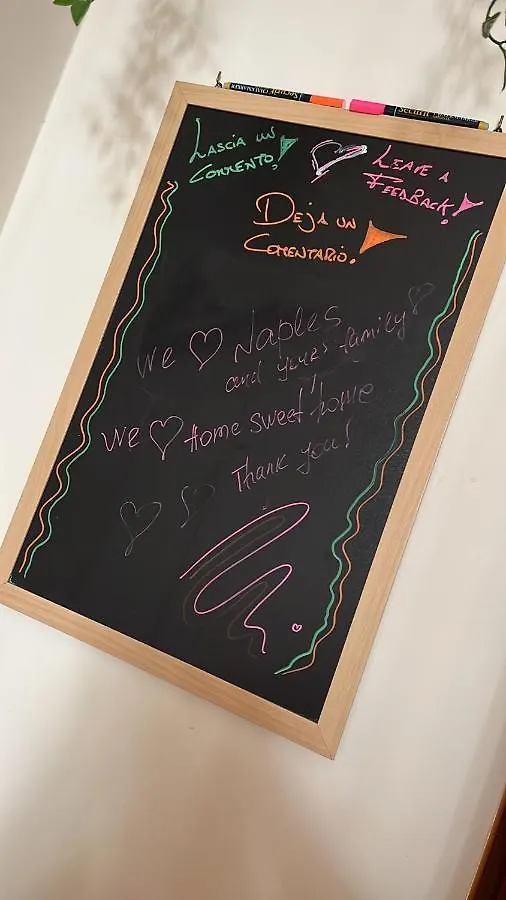 LASCIA UN
COMMENTO!
LEAVE A
FEEDBACK!
DEJA UN
COMENTARIO.
We ♡ Naples
and yours family ♡
We ♡ Home sweet home
Thank you!